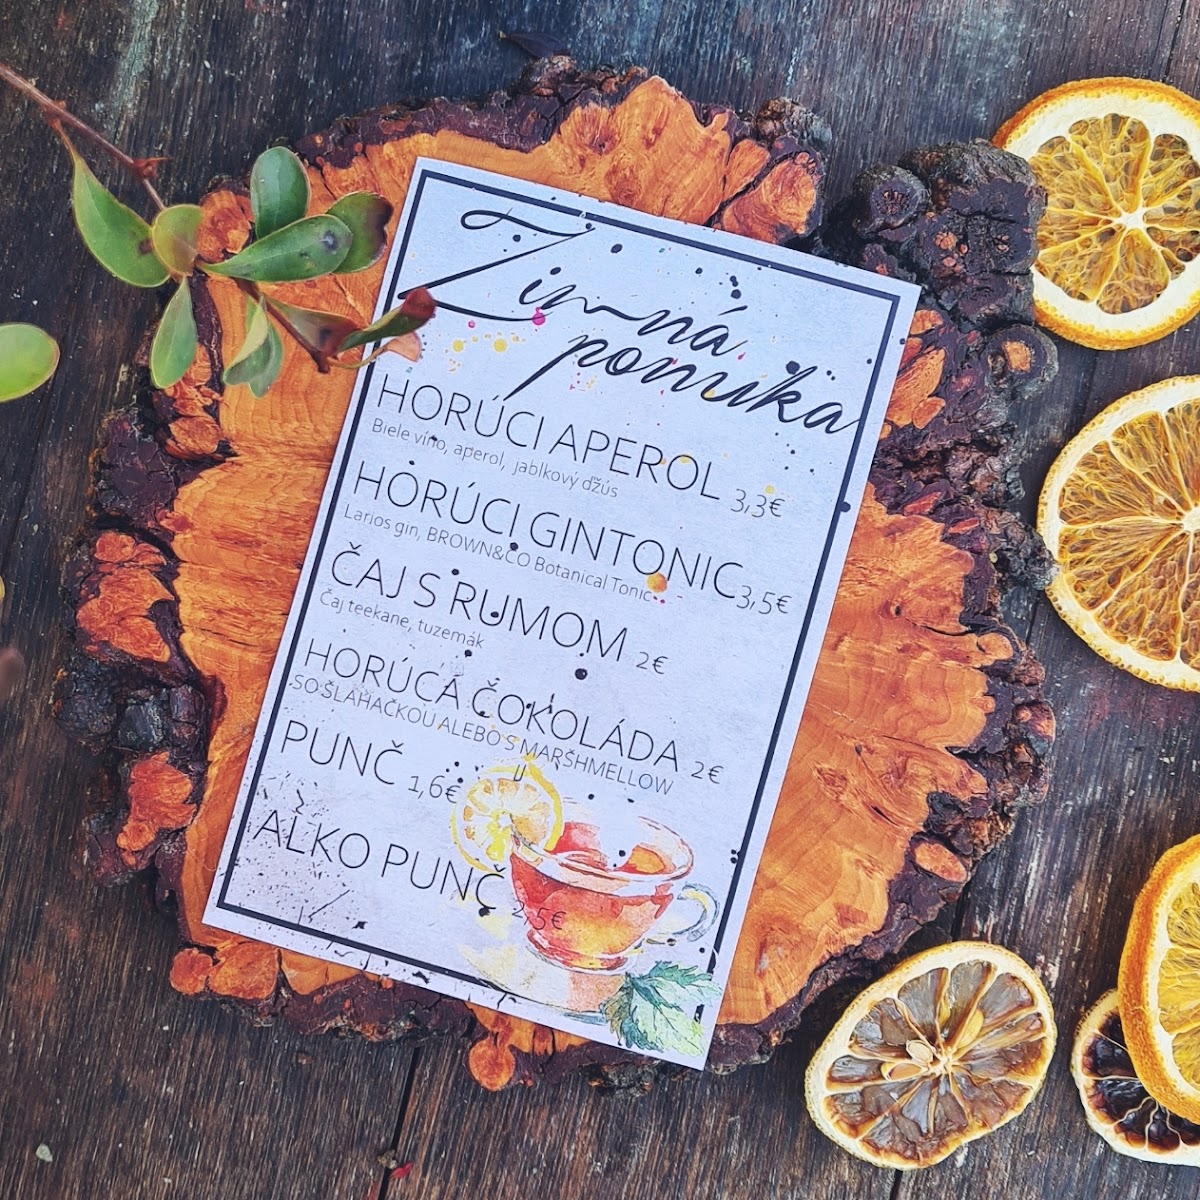 Zimná
ponuka
HORÚCI APEROL 3,3€
Biele víno, aperol, jablkový džús
HORÚCI GINTONIC 3,5€
Larios gin, BROWN&CO Botanical Tonic
ČAJ S RUMOM 2€
Čaj teekane, tuzemák
HORÚCA ČOKOLÁDA 2€
SO ŠĽAHAČKOU ALEBO S MARŠHMELLOW
PUNČ 1,6€
ALKO PUNČ 2,5€